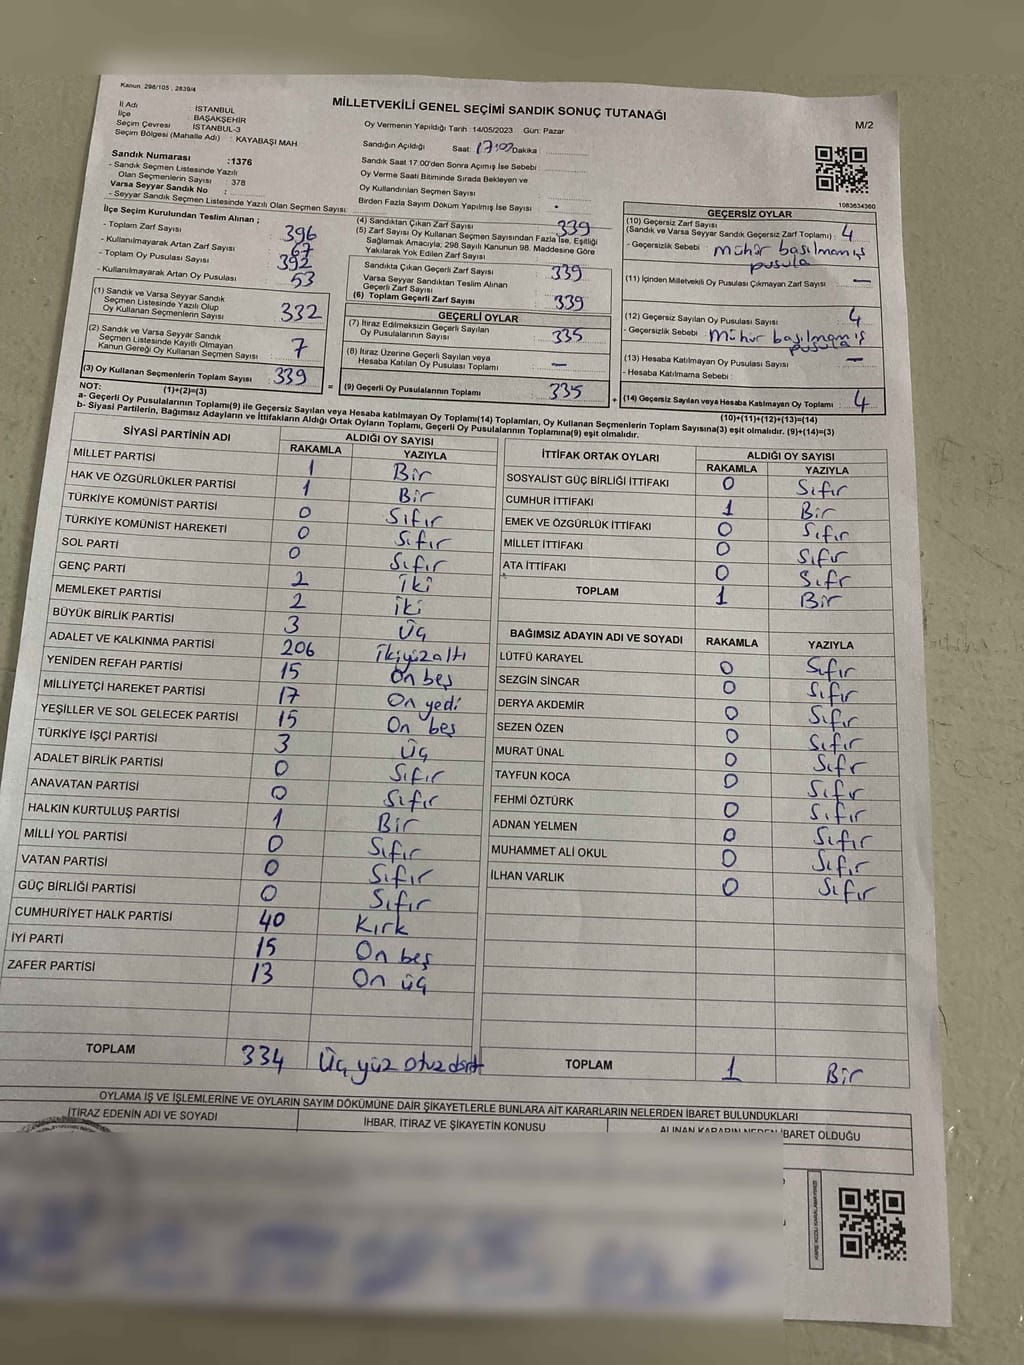 Kanun. 298/105 , 2839/4
MİLLETVEKİLİ GENEL SEÇİMİ SANDIK SONUÇ TUTANAĞI
M/2
İl Adı : İSTANBUL
İlçe : BAŞAKŞEHİR
Seçim Çevresi : İSTANBUL-3
Seçim Bölgesi (Mahalle Adı) : KAYABAŞI MAH
Sandık Numarası :1376
- Sandık Seçmen Listesinde Yazılı
Olan Seçmenlerin Sayısı : 378
Varsa Seyyar Sandık No :
- Seyyar Sandık Seçmen Listesinde Yazılı Olan Seçmen Sayısı:
Oy Vermenin Yapıldığı Tarih :14/05/2023 Gün: Pazar
Sandığın Açıldığı Saat: 17:07 Dakika :
Sandık Saat 17.00'den Sonra Açılmış İse Sebebi :
Oy Verme Saati Bitiminde Sırada Bekleyen ve
Oy Kullandırılan Seçmen Sayısı :
Birden Fazla Sayım Döküm Yapılmış İse Sayısı :
1083634360
İlçe Seçim Kurulundan Teslim Alınan ;
- Toplam Zarf Sayısı : 396
- Kullanılmayarak Artan Zarf Sayısı : 67
- Toplam Oy Pusulası Sayısı : 392
- Kullanılmayarak Artan Oy Pusulası : 53
(1) Sandık ve Varsa Seyyar Sandık
Seçmen Listesinde Yazılı Olup
Oy Kullanan Seçmenlerin Sayısı : 332
(2) Sandık ve Varsa Seyyar Sandık
Seçmen Listesinde Kayıtlı Olmayan
Kanun Gereği Oy Kullanan Seçmen Sayısı : 7
(3) Oy Kullanan Seçmenlerin Toplam Sayısı 339
(1)+(2)=(3)
(4) Sandıktan Çıkan Zarf Sayısı : 339
(5) Zarf Sayısı Oy Kullanan Seçmen Sayısından Fazla İse, Eşitliği
Sağlamak Amacıyla; 298 Sayılı Kanunun 98. Maddesine Göre
Yakılarak Yok Edilen Zarf Sayısı :
Sandıkta Çıkan Geçerli Zarf Sayısı : 339
Varsa Seyyar Sandıktan Teslim Alınan
Geçerli Zarf Sayısı :
(6) Toplam Geçerli Zarf Sayısı : 339
GEÇERLİ OYLAR
(7) İtiraz Edilmeksizin Geçerli Sayılan
Oy Pusulalarının Sayısı : 335
(8) İtiraz Üzerine Geçerli Sayılan veya
Hesaba Katılan Oy Pusulası Toplamı : —
= (9) Geçerli Oy Pusulalarının Toplamı : 335
GEÇERSİZ OYLAR
(10) Geçersiz Zarf Sayısı
(Sandık ve Varsa Seyyar Sandık Geçersiz Zarf Toplamı) : 4
- Geçersizlik Sebebi : mühür basılmamış
pusula
(11) İçinden Milletvekili Oy Pusulası Çıkmayan Zarf Sayısı : —
(12) Geçersiz Sayılan Oy Pusulası Sayısı : 4
- Geçersizlik Sebebi : Mühür basılmamış
pusula
(13) Hesaba Katılmayan Oy Pusulası Sayısı : —
- Hesaba Katılmama Sebebi :
+ (14) Geçersiz Sayılan veya Hesaba Katılmayan Oy Toplamı : 4
(10)+(11)+(12)+(13)=(14)
NOT:
a- Geçerli Oy Pusulalarının Toplamı(9) ile Geçersiz Sayılan veya Hesaba katılmayan Oy Toplamı(14) Toplamları, Oy Kullanan Seçmenlerin Toplam Sayısına(3) eşit olmalıdır. (9)+(14)=(3)
b- Siyasi Partilerin, Bağımsız Adayların ve İttifakların Aldığı Ortak Oyların Toplamı, Geçerli Oy Pusulalarının Toplamına(9) eşit olmalıdır.
SİYASİ PARTİNİN ADI ALDIĞI OY SAYISI
RAKAMLA YAZIYLA
MİLLET PARTİSİ 1 Bir
HAK VE ÖZGÜRLÜKLER PARTİSİ 1 Bir
TÜRKİYE KOMÜNİST PARTİSİ 0 Sıfır
TÜRKİYE KOMÜNİST HAREKETİ 0 Sıfır
SOL PARTİ 0 Sıfır
GENÇ PARTİ 2 İki
MEMLEKET PARTİSİ 2 İki
BÜYÜK BİRLİK PARTİSİ 3 Üç
ADALET VE KALKINMA PARTİSİ 206 İkiyüzaltı
YENİDEN REFAH PARTİSİ 15 On beş
MİLLİYETÇİ HAREKET PARTİSİ 17 On yedi
YEŞİLLER VE SOL GELECEK PARTİSİ 15 On beş
TÜRKİYE İŞÇİ PARTİSİ 3 Üç
ADALET BİRLİK PARTİSİ 0 Sıfır
ANAVATAN PARTİSİ 0 Sıfır
HALKIN KURTULUŞ PARTİSİ 1 Bir
MİLLİ YOL PARTİSİ 0 Sıfır
VATAN PARTİSİ 0 Sıfır
GÜÇ BİRLİĞİ PARTİSİ 0 Sıfır
CUMHURİYET HALK PARTİSİ 40 Kırk
İYİ PARTİ 15 On beş
ZAFER PARTİSİ 13 On üç
TOPLAM 334 Üç yüz otuz dört
İTTİFAK ORTAK OYLARI ALDIĞI OY SAYISI
RAKAMLA YAZIYLA
SOSYALİST GÜÇ BİRLİĞİ İTTİFAKI 0 Sıfır
CUMHUR İTTİFAKI 1 Bir
EMEK VE ÖZGÜRLÜK İTTİFAKI 0 Sıfır
MİLLET İTTİFAKI 0 Sıfır
ATA İTTİFAKI 0 Sıfr
TOPLAM 1 Bir
BAĞIMSIZ ADAYIN ADI VE SOYADI RAKAMLA YAZIYLA
LÜTFÜ KARAYEL 0 Sıfır
SEZGİN SİNCAR 0 Sıfır
DERYA AKDEMİR 0 Sıfır
SEZEN ÖZEN 0 Sıfır
MURAT ÜNAL 0 Sıfr
TAYFUN KOCA 0 Sıfır
FEHMİ ÖZTÜRK 0 Sıfır
ADNAN YELMEN 0 Sıfır
MUHAMMET ALİ OKUL 0 Sıfır
İLHAN VARLIK 0 Sıfır
TOPLAM 1 Bir
OYLAMA İŞ VE İŞLEMLERİNE VE OYLARIN SAYIM DÖKÜMÜNE DAİR ŞİKAYETLERLE BUNLARA AİT KARARLARIN NELERDEN İBARET BULUNDUKLARI
İTİRAZ EDENİN ADI VE SOYADI İHBAR, İTİRAZ VE ŞİKAYETİN KONUSU ALINAN KARARIN NEDEN İBARET OLDUĞU